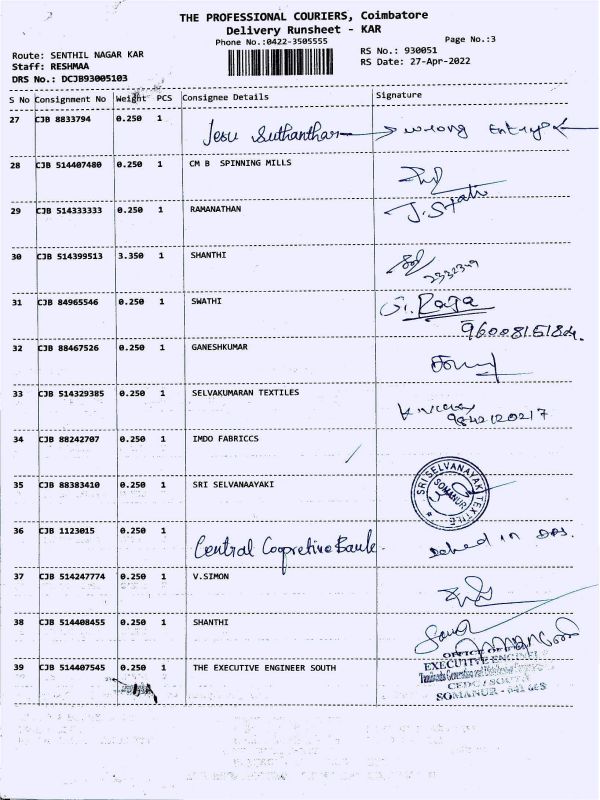 THE PROFESSIONAL COURIERS, Coimbatore
Delivery Runsheet - KAR
Phone No.:0422-3505555
Page No.:3
Route: SENTHIL NAGAR KAR
RS No.: 930051
Staff: RESHMAA
RS Date: 27-Apr-2022
DRS No.: DCJB93005103
S No Consignment No Weight PCS Consignee Details Signature
27 CJB 8833794 0.250 1 Jesu Suthanthar wrong Entry
28 CJB 514407480 0.250 1 CM B SPINNING MILLS
29 CJB 514333333 0.250 1 RAMANATHAN
30 CJB 514399513 3.350 1 SHANTHI
31 CJB 84965546 0.250 1 SWATHI G. Raja
9600815184.
32 CJB 88467526 0.250 1 GANESHKUMAR
33 CJB 514329385 0.250 1 SELVAKUMARAN TEXTILES
9842120217
34 CJB 88242707 0.250 1 IMDO FABRICCS
35 CJB 88383410 0.250 1 SRI SELVANAAYAKI SRI SELVANAYAKI TEXTILE SOMANUR
36 CJB 1123015 0.250 1 Central Coopretive Bank. in DRS.
37 CJB 514247774 0.250 1 V.SIMON
38 CJB 514408455 0.250 1 SHANTHI
39 CJB 514407545 0.250 1 THE EXECUTIVE ENGINEER SOUTH
OFFICE OF
EXECUTIVE ENGINEER
SOMANUR - 641 668